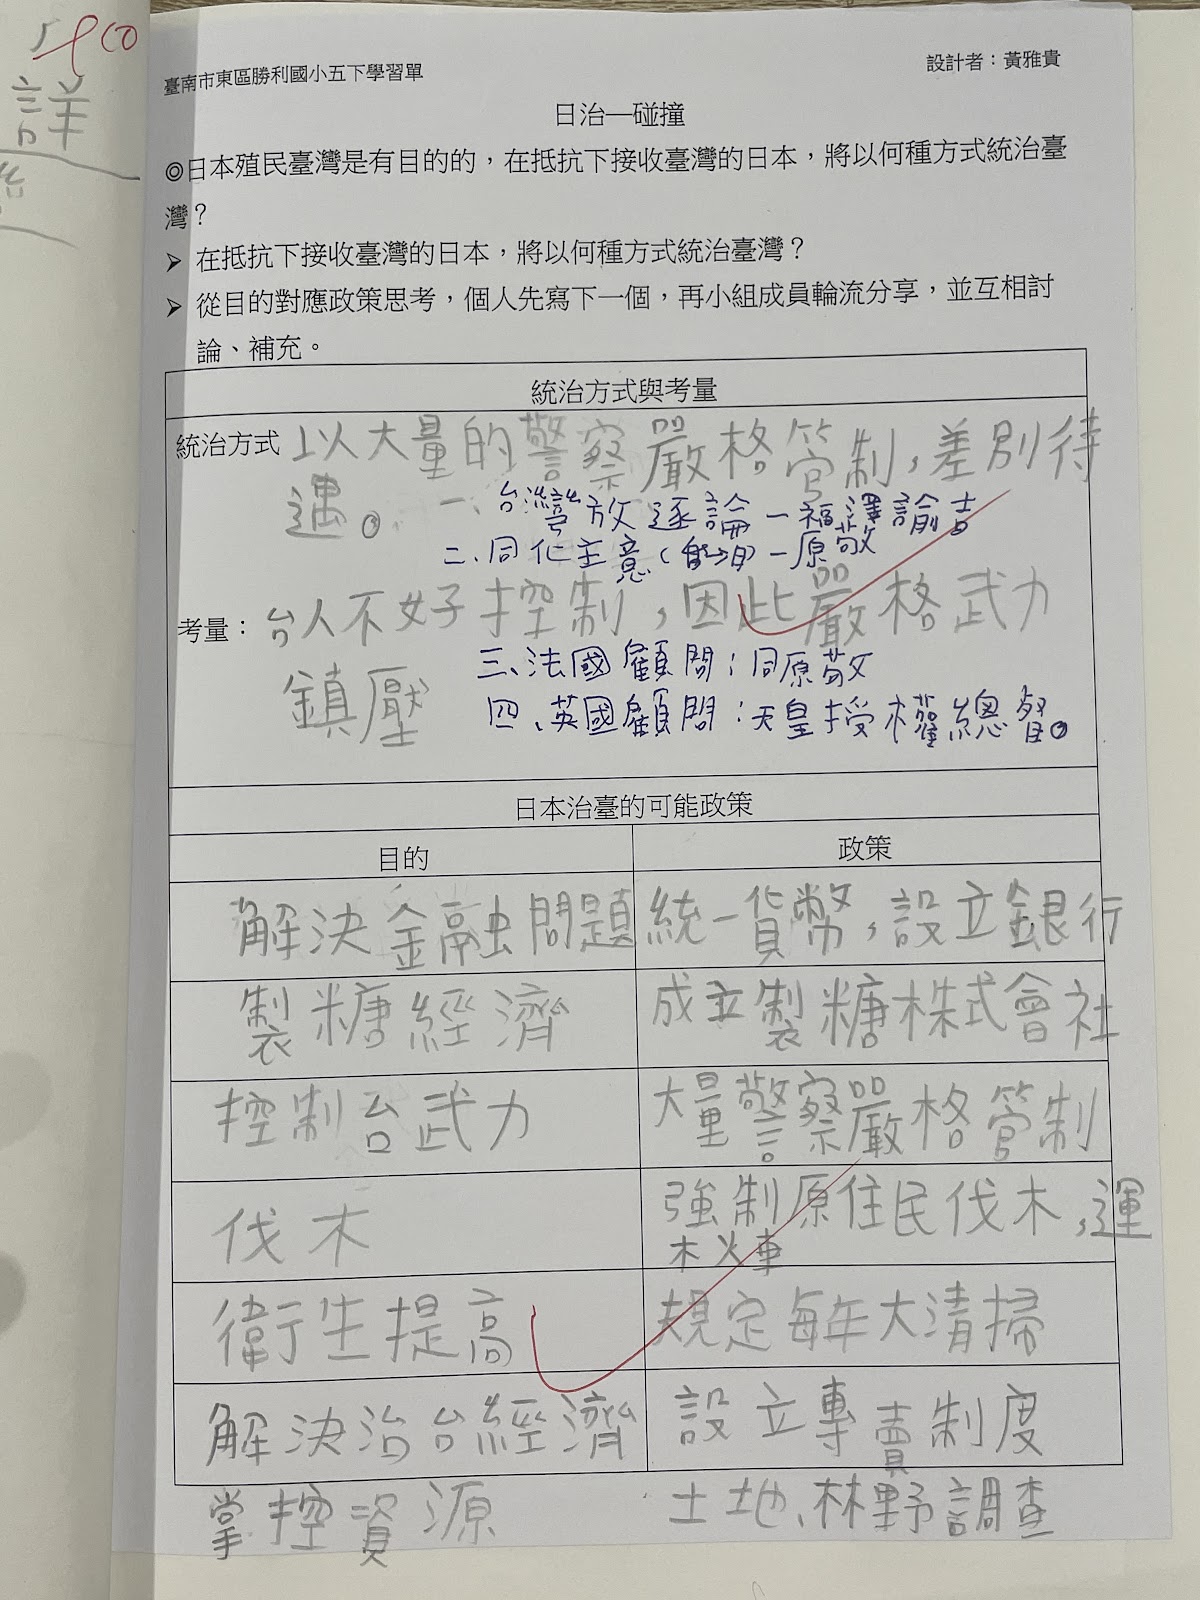 詳
臺南市東區勝利國小五下學習單
設計者：黃雅貴
日治—碰撞
◎日本殖民臺灣是有目的的，在抵抗下接收臺灣的日本，將以何種方式統治臺
灣？
➢ 在抵抗下接收臺灣的日本，將以何種方式統治臺灣？
➢ 從目的對應政策思考，個人先寫下一個，再小組成員輪流分享，並互相討
論、補充。
統治方式與考量
統治方式 以大量的警察嚴格管制，差別待
遇。
一、台灣放逐論－福澤諭吉
二、同化主意（ ）－原敬
考量：台人不好控制，因此嚴格武力
鎮壓
三、法國顧問：同原敬
四、英國顧問：天皇授權總督。
日本治臺的可能政策
目的 政策
解決金融問題 統一貨幣，設立銀行
製糖經濟 成立製糖株式會社
控制台武力 大量警察嚴格管制
伐木 強制原住民伐木，運
木火車
衛生提高 規定每年大清掃
解決治台經濟 設立專賣制度
掌控資源 土地、林野調查